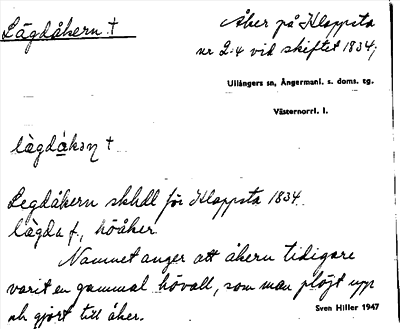 Lägdåkern †
Åker på Kloppsta
nr 2-4 vid skiftet 1834;
Ullångers sn, Ångermanl. s. doms. tg.
Västernorrl. l.
lägdåkən †
Legdåkern skhdl för Kloppsta 1834.
lägda f., höåker
Namnet anger att åkern tidigare
varit en gammal hövall, som man plöjt upp
och gjort till åker.
Sven Hiller 1947